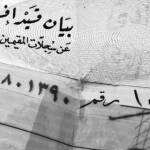 بيان قيد افر
عن سجلات المقيمين
رقم ٨٠١٣٩٠